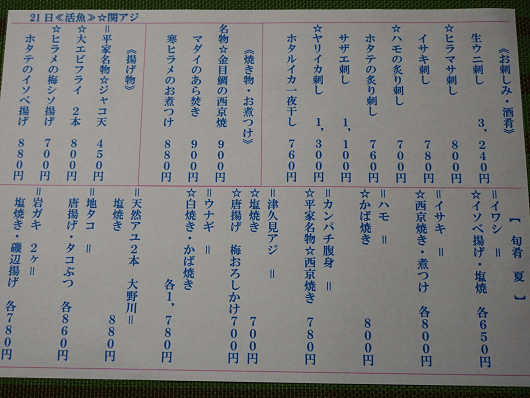 21日≪活魚≫☆関アジ
《お刺し・酒肴》
生ウニ刺し 3,240円
☆ヒラマサ刺し 800円
イサキ刺し 780円
☆ハモの炙り刺し 700円
ホタテの炙り刺し 760円
サザエ刺し 1,100円
☆ヤリイカ刺し 1,300円
ホタルイカ一夜干し 760円
《焼き物・お煮つけ》
名物☆金目鯛の西京焼 900円
マダイのあら焚き 900円
寒ヒラメのお煮つけ 880円
《揚げ物》
=平家名物☆ジャコ天 450円
☆大エビフライ 2本 800円
☆ヒラメの梅シソ揚げ 700円
ホタテのイソベ揚げ 880円
【旬肴 夏】
=イワシ=
☆イソベ揚げ・塩焼 各650円
=イサキ=
☆西京焼き・煮つけ 各800円
=ハモ=
☆かば焼き 800円
=カンパチ腹身=
☆平家名物☆西京焼き 780円
=津久見アジ=
☆塩焼き 700円
☆唐揚げ 梅おろしかけ 700円
=ウナギ=
☆白焼き・かば焼き 各1,780円
=天然アユ2本 大野川=
塩焼き 880円
=地タコ=
唐揚げ・タコぶつ 各860円
=岩ガキ 2ヶ=
塩焼き・磯辺揚げ 各780円